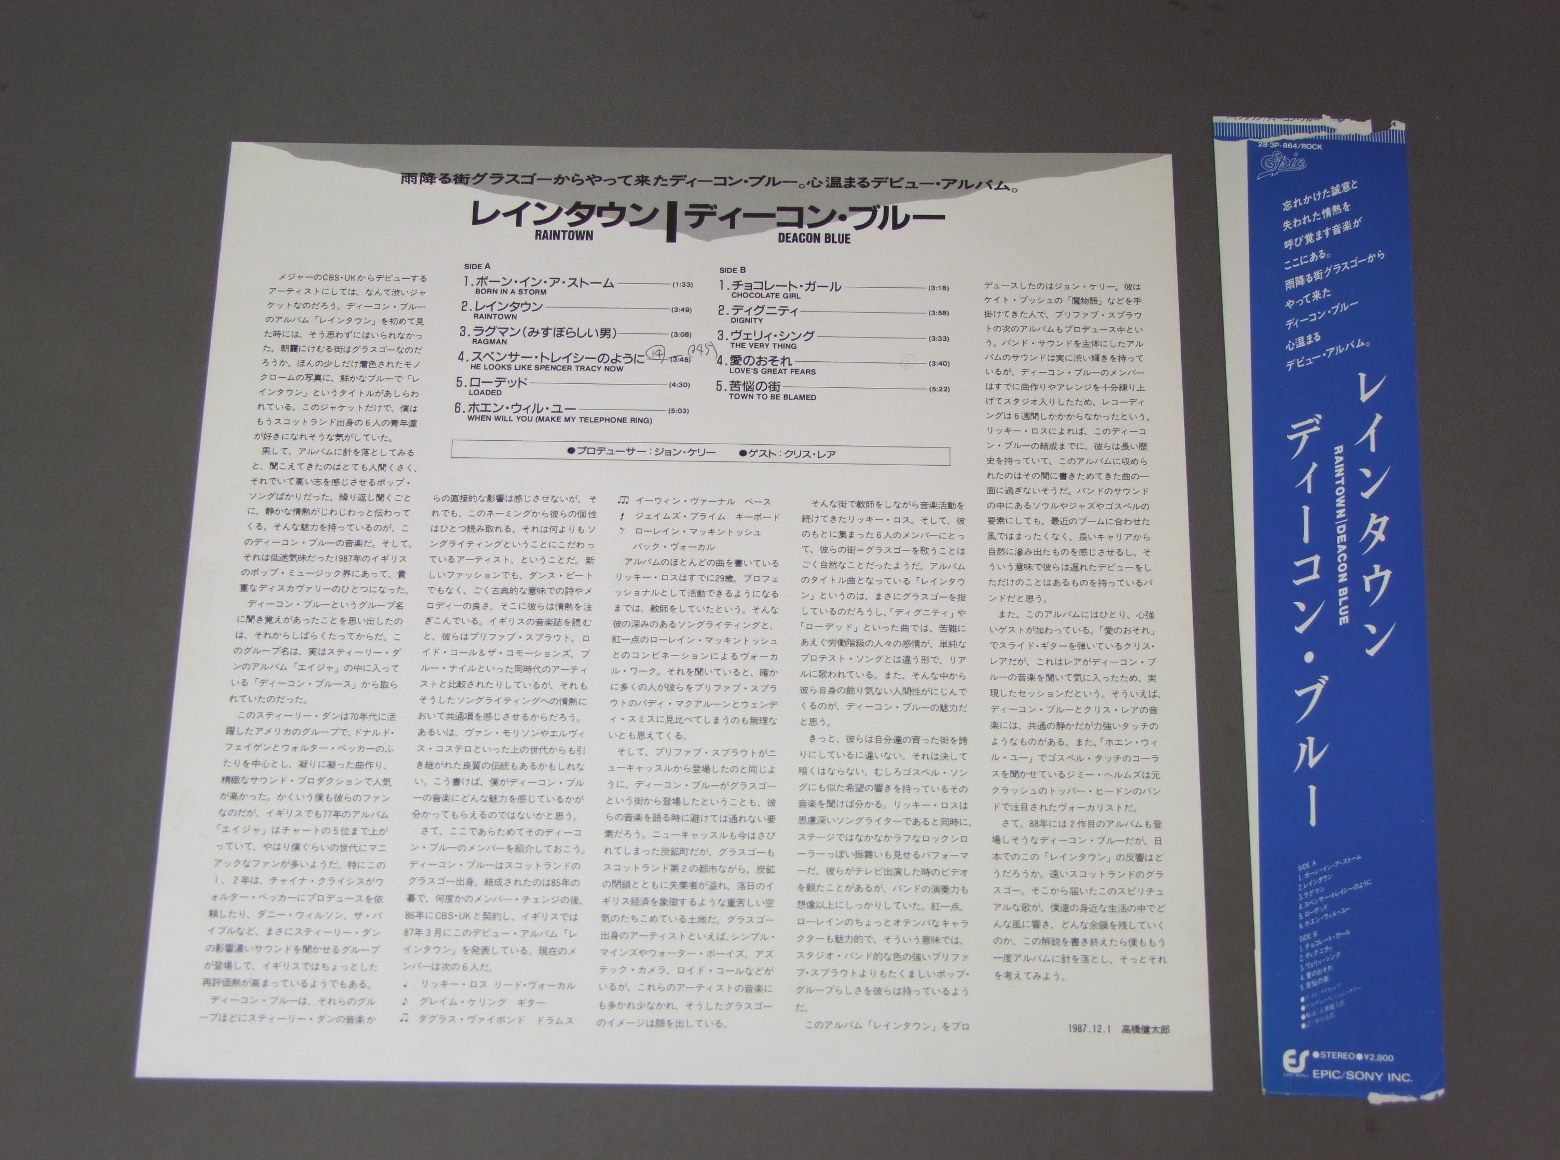 雨降る街グラスゴーからやって来たディーコン・ブルー。心温まるデビュー・アルバム。
レインタウン ディーコン・ブルー
RAINTOWN DEACON BLUE
SIDE A
1.ボーン・イン・ア・ストーム (1:33)
BORN IN A STORM
2.レインタウン (3:49)
RAINTOWN
3.ラグマン(みすぼらしい男) (3:08)
RAGMAN
4.スペンサー・トレイシーのように (3:48)
HE LOOKS LIKE SPENCER TRACY NOW
5.ローデッド (4:30)
LOADED
6.ホエン・ウィル・ユー (5:03)
WHEN WILL YOU (MAKE MY TELEPHONE RING)
SIDE B
1.チョコレート・ガール (3:18)
CHOCOLATE GIRL
2.ディグニティ (3:58)
DIGNITY
3.ヴェリィ・シング (3:33)
THE VERY THING
4.愛のおそれ (3:40)
LOVE'S GREAT FEARS
5.苦悩の街 (5:22)
TOWN TO BE BLAMED
●プロデューサー:ジョン・ケリー ●ゲスト:クリス・レア
メジャーのCBS・UKからデビューする
アーティストにしては、なんて渋いジャ
ケットなのだろう。ディーコン・ブルー
のアルバム「レインタウン」を初めて見
た時には、そう思わずにはいられなかっ
た。朝靄にけむる街はグラスゴーなのだ
ろうか。ほんの少しだけ着色されたモノ
クロームの写真に、鮮かなブルーで「レ
インタウン」というタイトルがあしらわ
れている。このジャケットだけで、僕は
もうスコットランド出身の6人の青年達
が好きになれそうな気がしていた。
果して、アルバムに針を落としてみる
と、聞こえてきたのはとても人間くさく、
それでいて高い志を感じさせるポップ・
ソングばかりだった。繰り返し聞くごと
に、静かな情熱がじわじわっと伝わって
くる。そんな魅力を持っているのが、こ
のディーコン・ブルーの音楽だ。そして、
それは低迷気味だった1987年のイギリス
のポップ・ミュージック界にあって、貴
重なディスカヴァリーのひとつになった。
ディーコン・ブルーというグループ名
に聞き覚えがあったことを思い出したの
は、それからしばらくたってからだ。こ
のグループ名は、実はスティーリー・ダ
ンのアルバム「エイジャ」の中に入って
いる「ディーコン・ブルース」から取ら
れていたのだった。
このスティーリー・ダンは70年代に活
躍したアメリカのグループで、ドナルド・
フェイゲンとウォルター・ベッカーのふ
たりを中心とし、凝りに凝った曲作り、
精緻なサウンド・プロダクションで人気
が高かった。かくいう僕も彼らのファン
なのだが、イギリスでも77年のアルバム
「エイジャ」はチャートの5位まで上が
っていて、やはり僕ぐらいの世代にマニ
アックなファンが多いようだ。特にこの
1、2年は、チャイナ・クライシスがウ
ォルター・ベッカーにプロデュースを依
頼したり、ダニー・ウィルソン、ザ・バ
イブルなど、まさにスティーリー・ダン
の影響濃いサウンドを聞かせるグループ
が登場して、イギリスではちょっとした
再評価熱が高まっているようでもある。
ディーコン・ブルーは、それらのグル
ープほどにスティーリー・ダンの音楽か
らの直接的な影響は感じさせないが、そ
れでも、このネーミングから彼らの個性
はひとつ読み取れる。それは何よりもソ
ングライティングということにこだわっ
ているアーティスト、ということだ。新
しいファッションでも、ダンス・ビート
でもなく、ごく古典的な意味での詩やメ
ロディーの良さ。そこに彼らは情熱を注
ぎこんでいる。イギリスの音楽誌を読む
と、彼らはプリファブ・スプラウト、ロ
イド・コール&ザ・コモーションズ、ブ
ルー・ナイルといった同時代のアーティ
ストと比較されたりしているが、それも
そうしたソングライティングへの情熱に
おいて共通項を感じさせるからだろう。
あるいは、ヴァン・モリソンやエルヴィ
ス・コステロといった上の世代からも引
き継がれた良質の伝統もあるかもしれな
い。こう書けば、僕がディーコン・ブル
ーの音楽にどんな魅力を感じているかが
分かってもらえるのではないかと思う。
さて、ここであらためてそのディーコ
ン・ブルーのメンバーを紹介しておこう。
ディーコン・ブルーはスコットランドの
グラスゴー出身。結成されたのは85年の
暮で、何度かのメンバー・チェンジの後、
86年にCBS・UKと契約し、イギリスでは
87年3月にこのデビュー・アルバム「レ
インタウン」を発表している。現在のメ
ンバーは次の6人だ。
♩ リッキー・ロス リード・ヴォーカル
♪ グレイム・ケリング ギター
♫ ダグラス・ヴァイポンド ドラムス
♫ イーウィン・ヴァーナル ベース
ジェイムズ・プライム キーボード
ローレイン・マッキントッシュ
バック・ヴォーカル
アルバムのほとんどの曲を書いている
リッキー・ロスはすでに29歳。プロフェ
ッショナルとして活動できるようになる
までは、教師をしていたという。そんな
彼の深みのあるソングライティングと、
紅一点のローレイン・マッキントッシュ
とのコンビネーションによるヴォーカ
ル・ワーク。それを聞いていると、確か
に多くの人が彼らをプリファブ・スプラ
ウトのパディ・マクアルーンとウェンデ
ィ・スミスに見比べてしまうのも無理な
いとも思えてくる。
そして、プリファブ・スプラウトがニ
ューキャッスルから登場したのと同じよ
うに、ディーコン・ブルーがグラスゴー
という街から登場したということも、彼
らの音楽を語る時に避けては通れない要
素だろう。ニューキャッスルも今はさび
れてしまった炭鉱町だが、グラスゴーも
スコットランド第2の都市ながら、炭鉱
の閉鎖とともに失業者が溢れ、落日のイ
ギリス経済を象徴するような重苦しい空
気のたちこめている土地だ。グラスゴー
出身のアーティストといえば、シンプル・
マインズやウォーター・ボーイズ、アズ
テック・カメラ、ロイド・コールなどが
いるが、これらのアーティストの音楽に
も多かれ少なかれ、そうしたグラスゴー
のイメージは顔を出している。
そんな街で教師をしながら音楽活動を
続けてきたリッキー・ロス。そして、彼
のもとに集まった6人のメンバーにとっ
て、彼らの街=グラスゴーを歌うことは
ごく自然なことだったようだ。アルバム
のタイトル曲となっている「レインタウ
ン」というのは、まさにグラスゴーを指
しているのだろうし、「ディグニティ」や
「ローデッド」といった曲では、苦難に
あえぐ労働階級の人々の感情が、単純な
プロテスト・ソングとは違う形で、リア
ルに歌われている。また、そんな中から
彼ら自身の飾り気ない人間性がにじんで
くるのが、ディーコン・ブルーの魅力だ
と思う。
きっと、彼らは自分達の育った街を誇
りにしているに違いない。それは決して
暗くはならない、むしろゴスペル・ソン
グにも似た希望の響きを持っているその
音楽を聞けば分かる。リッキー・ロスは
思慮深いソングライターであると同時に、
ステージではなかなかラフなロックンロ
ーラーっぽい振舞いも見せるパフォーマ
ーだ。彼らがテレビ出演した時のビデオ
を観たことがあるが、バンドの演奏力も
想像以上にしっかりしていた。紅一点、
ローレインのちょっとオテンバなキャラ
クターも魅力的で、そういう意味では、
スタジオ・バンド的な色の強いプリファ
ブ・スプラウトよりもたくましいポップ・
グループらしさを彼らは持っているよう
だ。
このアルバム「レインタウン」をプロ
デュースしたのはジョン・ケリー。彼は
ケイト・ブッシュの「魔物語」などを手
掛けてきた人で、プリファブ・スプラウ
トの次のアルバムもプロデュース中とい
う。バンド・サウンドを主体にしたアル
バムのサウンドは実に渋い輝きを持って
いるが、ディーコン・ブルーのメンバー
はすでに曲作りやアレンジを十分練り上
げてスタジオ入りしたため、レコーディ
ングは6週間しかかからなかったという。
リッキー・ロスによれば、このディーコ
ン・ブルーの結成までに、彼らは長い歴
史を持っていて、このアルバムに収めら
れたのはその間に書きためてきた曲の一
面に過ぎないそうだ。バンドのサウンド
の中にあるソウルやジャズやゴスペルの
要素にしても、最近のブームに合わせた
風ではまったくなく、長いキャリアから
自然に滲み出たものを感じさせるし、そ
ういう意味で彼らは遅れたデビューをし
ただけのことはあるものを持っているバ
ンドだと思う。
また、このアルバムにはひとり、心強
いゲストが加わっている。「愛のおそれ」
でスライド・ギターを弾いているクリス・
レアだが、これはレアがディーコン・ブ
ルーの音楽を聞いて気に入ったため、実
現したセッションだという。そういえば、
ディーコン・ブルーとクリス・レアの音
楽には、共通の静かだが力強いタッチの
ようなものがある。また、「ホエン・ウィ
ル・ユー」でゴスペル・タッチのコーラ
スを聞かせているジミー・ヘルムズは元
クラッシュのトッパー・ヒードンのバン
ドで注目されたヴォーカリストだ。
さて、88年には2作目のアルバムも登
場しそうなディーコン・ブルーだが、日
本でのこの「レインタウン」の反響はど
うだろうか。遠いスコットランドのグラ
スゴー。そこから届いたこのスピリチュ
アルな歌が、僕達の身近な生活の中でど
んな風に響き、どんな余韻を残していく
のか、この解説を書き終えたら僕ももう
一度アルバムに針を落とし、そっとそれ
を考えてみよう。
1987.12.1 高橋健太郎
28・3P-864/ROCK
Epic
忘れかけた誠意と
失われた情熱を
呼び覚ます音楽が
ここにある。
雨降る街グラスゴーから
やって来た
ディーコン・ブルー
心温まる
デビュー・アルバム。
レインタウン
RAINTOWN/DEACON BLUE
ディーコン・ブルー
SIDE A
1.ボーン・イン・ア・ストーム
2.レインタウン
3.ラグマン
4.スペンサー・トレイシーのように
5.ローデッド
6.ホエン・ウィル・ユー
SIDE B
1.チョコレート・ガール
2.ディグニティ
3.ヴェリィ・シング
4.愛のおそれ
5.苦悩の街
ES ●STEREO●¥2,800
EPIC/SONY INC.